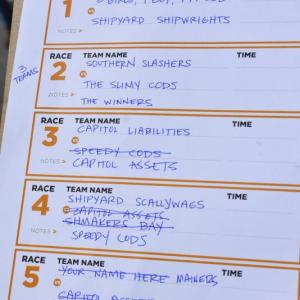 1
SHIPYARD SHIPWRIGHTS
NOTES >
3 TEAMS
RACE TEAM NAME TIME
2 SOUTHERN SLASHERS
VS
THE SLIMY CODS
NOTES > THE WINNERS
RACE TEAM NAME TIME
3 CAPITOL LIABILITIES
VS
SPEEDY CODS
NOTES > CAPITOL ASSETS
RACE TEAM NAME TIME
4 SHIPYARD SCALLYWAGS
VS CAPITOL ASSETS
SHMAKERS BAY
NOTES > SPEEDY CODS
RACE TEAM NAME TIME
5 YOUR NAME HERE MAINERS
CAPITOL